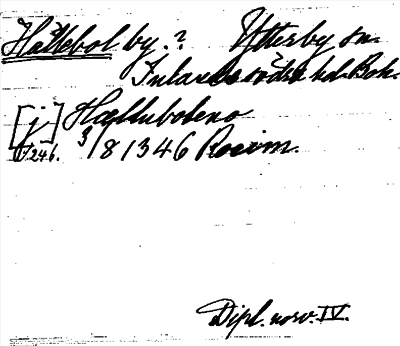 Hällebol by.? Ytterby sn.
Inlands södra hd. Boh.
[j] Hæglluboleno
246. 3/8 1346 Rocim.
Dipl. norv. IV.